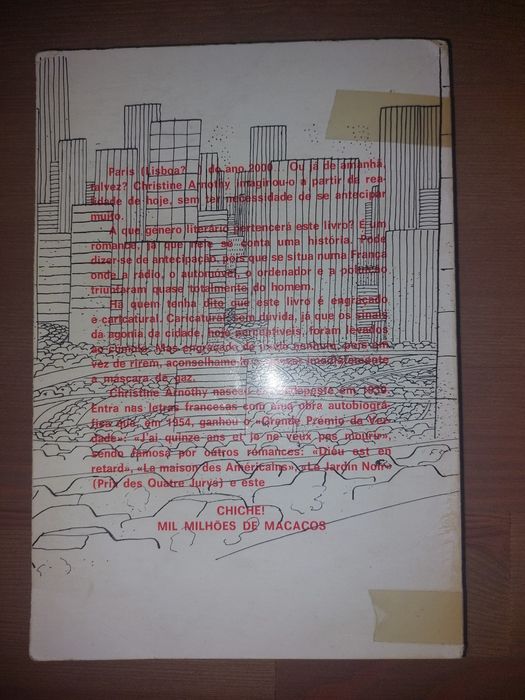 Paris (Lisboa?...) do ano 2000... Ou já de amanhã,
talvez? Christine Arnothy imaginou-o a partir da rea-
lidade de hoje, sem ter necessidade de se antecipar
muito.
A que género literário pertencerá este livro? É um
romance, já que nele se conta uma história. Pode
dizer-se de antecipação, pois que se situa numa França
onde a rádio, o automóvel, o ordenador e a poluição
triunfaram quase totalmente do homem.
Há quem tenha dito que este livro é engraçado
e caricatural. Caricatural, sem dúvida, já que os sinais
da agonia da cidade, hoje perceptíveis, foram levados
ao cúmulo. Mas engraçado de modo nenhum, pois em
vez de rirem, aconselhamo-los a usar imediatamente
a máscara de gaz.
Christine Arnothy nasceu em Budapeste em 1930.
Entra nas letras francesas com uma obra autobiográ-
fica que, em 1954, ganhou o «Grande Prémio da Ver-
dade»: «J'ai quinze ans et je ne veux pas mourir»,
sendo famosa por outros romances: «Dieu est en
retard», «La maison des Américains», «Le Jardin Noir»
(Prix des Quatre Jurys) e este
CHICHE!
MIL MILHÕES DE MACACOS